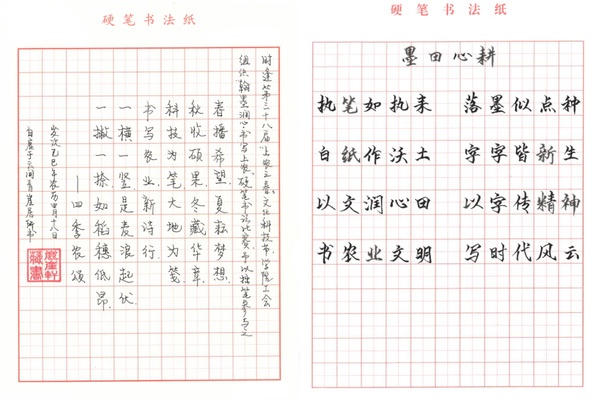 硬笔书法纸
时逢第三十八届上农之春文化科技节,学院工会
组织翰墨润心书写上农,硬笔书法比赛,以拙笔参与之
春播希望,夏耘梦想.
秋收硕果,冬藏华章.
科技为笔大地为笺
书写农业新诗行.
一横一竖是麦浪起伏
一撇一捺如稻穗低昂.
——四季农颂
岁次乙巳年农历四月十八日
于云间青崖居书
硬笔书法纸
墨田心耕
执笔如执耒 落墨似点种
白纸作沃土 字字皆新生
以文润心田 以字传精神
书农业文明 写时代风云